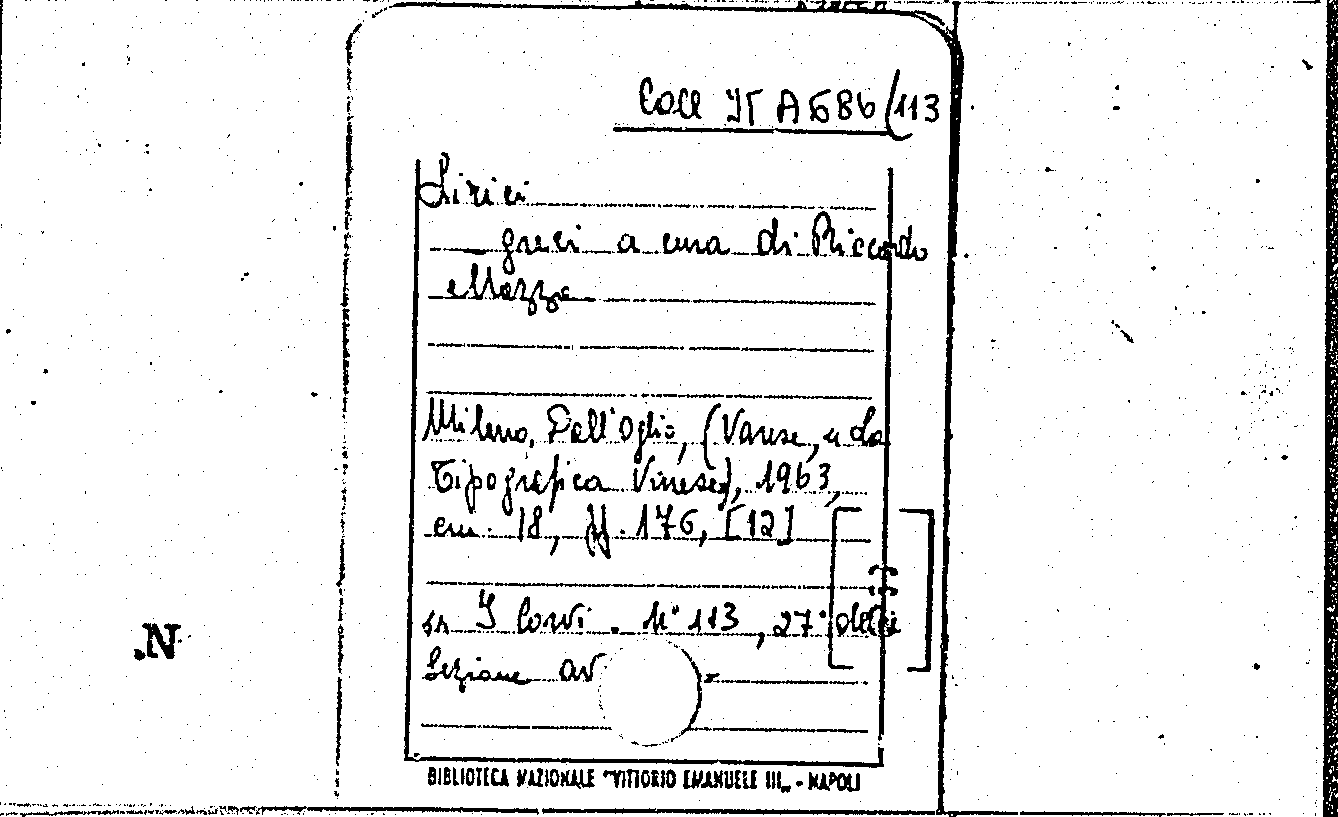 Coll IT A 686/113
Lirici
greci a cura di Riccardo
Mazza
Milano, Dall'Oglio, (Varese, La
Tipografica Varese), 1963,
cm. 18, pp. 176, [12]
I Corvi. N° 113, 27° della
Sezione
N.
BIBLIOTECA NAZIONALE "VITTORIO EMANUELE III„ - NAPOLI